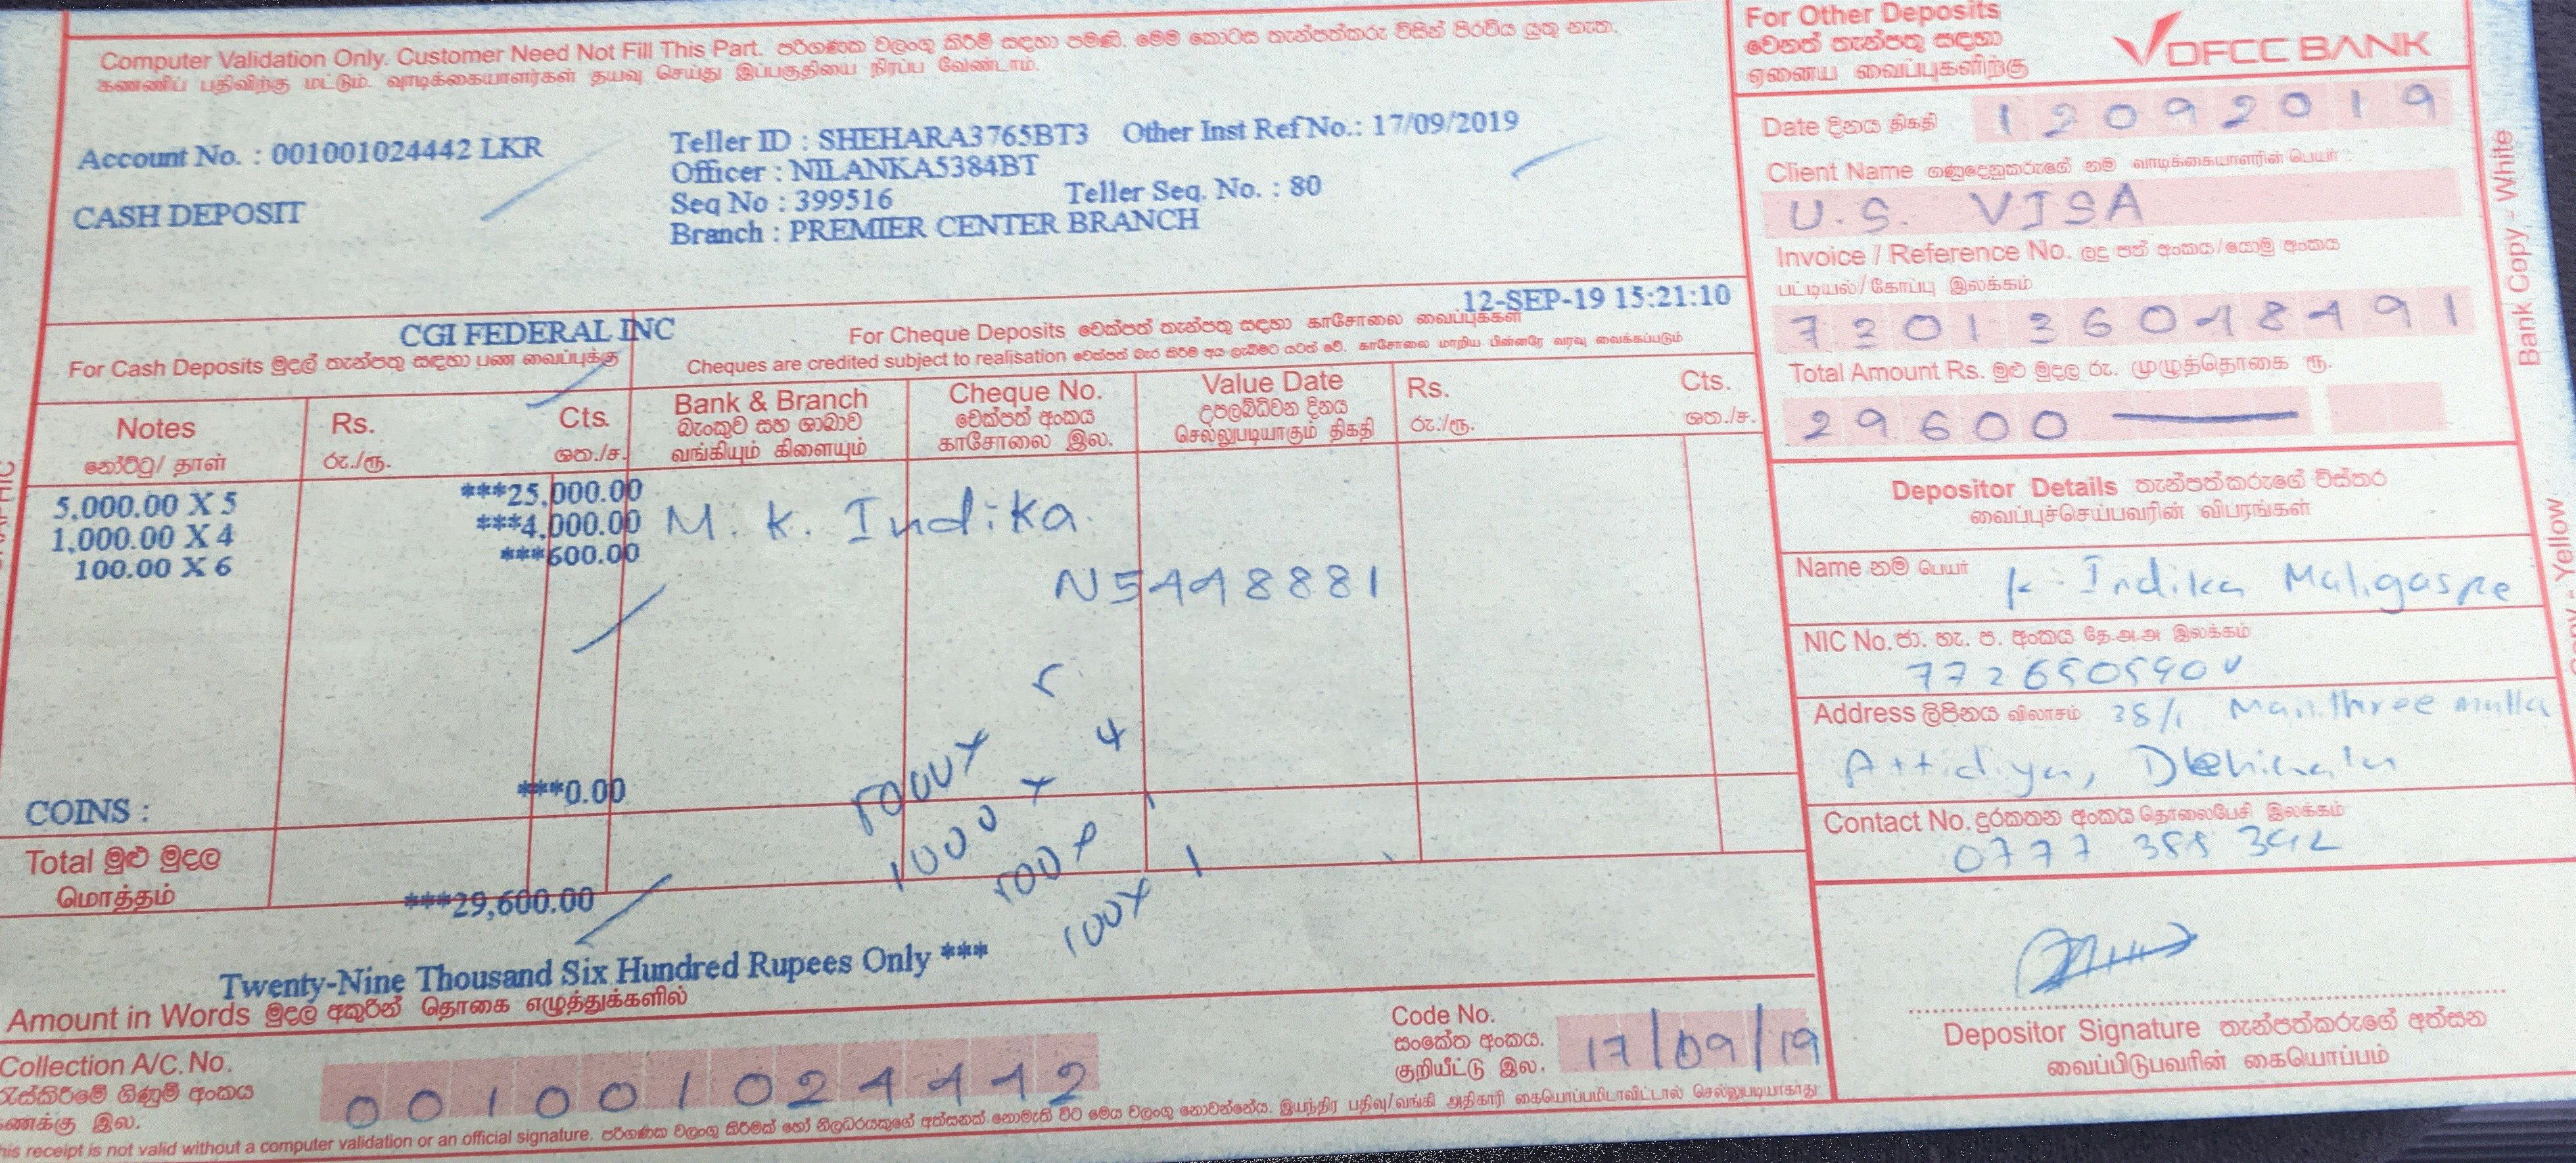 Computer Validation Only. Customer Need Not Fill This Part. පරිගණක වලංගු කිරීම් සඳහා පමණි. මෙම කොටස තැන්පත්කරු විසින් පිරවිය යුතු නැත.
கணணிப் பதிவிற்கு மட்டும். வாடிக்கையாளர்கள் தயவு செய்து இப்பகுதியை நிரப்ப வேண்டாம்.
Account No. : 001001024442 LKR
CASH DEPOSIT
Teller ID : SHEHARA3765BT3 Other Inst Ref No.: 17/09/2019
Officer : NILANKA5384BT
Seq No : 399516 Teller Seq. No. : 80
Branch : PREMIER CENTER BRANCH
12-SEP-19 15:21:10
CGI FEDERAL INC
For Cash Deposits මුදල් තැන්පතු සඳහා பண வைப்புக்கு
For Cheque Deposits චෙක්පත් තැන්පතු සඳහා காசோலை வைப்புக்கள்
Cheques are credited subject to realisation චෙක්පත් බැර කිරීම් අය ලැබීමට යටත් වේ. காசோலை மாறிய பின்னரே வரவு வைக்கப்படும்
Notes Rs. Cts.
නෝට්ටු/ தாள் රු./ரூ. ශත./ச.
Bank & Branch
බැංකුව සහ ශාඛාව
வங்கியும் கிளையும்
Cheque No.
චෙක්පත් අංකය
காசோலை இல.
Value Date
උපලබ්ධිවන දිනය
செல்லுபடியாகும் திகதி
Rs. Cts.
රු./ரூ. ශත./ச.
5,000.00 X 5 ***25,000.00
1,000.00 X 4 ***4,000.00
100.00 X 6 ***600.00
M. K. Indika.
N5448881
5000X 5
1000 X 4
500 X 1
100X 1
COINS : ***0.00
Total මුළු මුදල
மொத்தம்
***29,600.00
Twenty-Nine Thousand Six Hundred Rupees Only ***
Amount in Words මුදල අකුරින් தொகை எழுத்துக்களில்
Collection A/C. No.
රැස්කිරීමේ ගිණුම් අංකය
கணக்கு இல.
001001024442
Code No.
සංකේත අංකය.
குறியீட்டு இல.
17/09/19
This receipt is not valid without a computer validation or an official signature. පරිගණක වලංගු කිරීමක් හෝ නිලධරයකුගේ අත්සනක් නොමැති විට මෙය වලංගු නොවන්නේය. இயந்திர பதிவு/வங்கி அதிகாரி கையொப்பமிடாவிட்டால் செல்லுபடியாகாது
For Other Deposits
වෙනත් තැන්පතු සඳහා
ஏனைய வைப்புகளிற்கு
DFCC BANK
Date දිනය திகதி 12092019
Client Name ගණුදෙනුකරුගේ නම வாடிக்கையாளரின் பெயர்
U.S. VISA
Invoice / Reference No. ලදු පත් අංකය/යොමු අංකය
பட்டியல்/கோப்பு இலக்கம்
720136048491
Total Amount Rs. මුළු මුදල රු. முழுத்தொகை ரூ.
29600
Depositor Details තැන්පත්කරුගේ විස්තර
வைப்புச்செய்பவரின் விபரங்கள்
Name නම பெயர் K. Indika Maligaspe
NIC No. ජා. හැ. ප. අංකය தே.அ.அ இலக்கம்
772650590V
Address ලිපිනය விலாசம் 38/1
Attidiya,
Contact No. දුරකතන අංකය தொலைபேசி இலக்கம்
0777 388 342
Depositor Signature තැන්පත්කරුගේ අත්සන
வைப்பிடுபவரின் கையொப்பம்
Bank Copy - White
Yellow